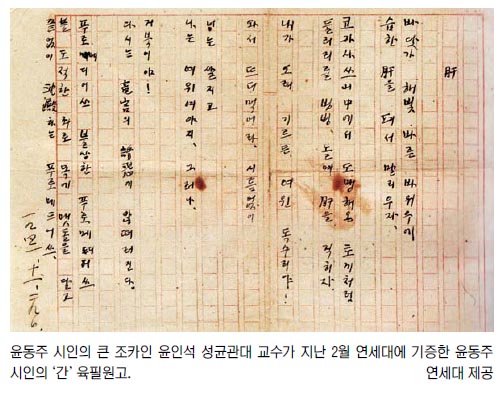 肝
바닷가 햇빛 바른 바위우에
습한 肝을 펴서 말리우자.
코카사쓰山中에서 도맹해온 토끼처럼
둘러리를 빙빙 돌며 肝을 직히자.
내가 오래 기르든 여윈 독수리야!
와서 뜨더먹어라, 시름없이
너는 살지고
나는 여위여야지, 그러나,
거북이야!
다시는 龍宮의 誘惑에 않떠러진다.
푸로메디어쓰 불상한 푸로메디어쓰
불 도적한 죄로 목에 맷돌을 달고
끝없이 沈澱하는 푸로메드어쓰.
一九四一. 十一. 二九.
윤동주 시인의 큰 조카인 윤인석 성균관대 교수가 지난 2월 연세대에 기증한 윤동주
시인의 '간' 육필원고.
연세대 제공